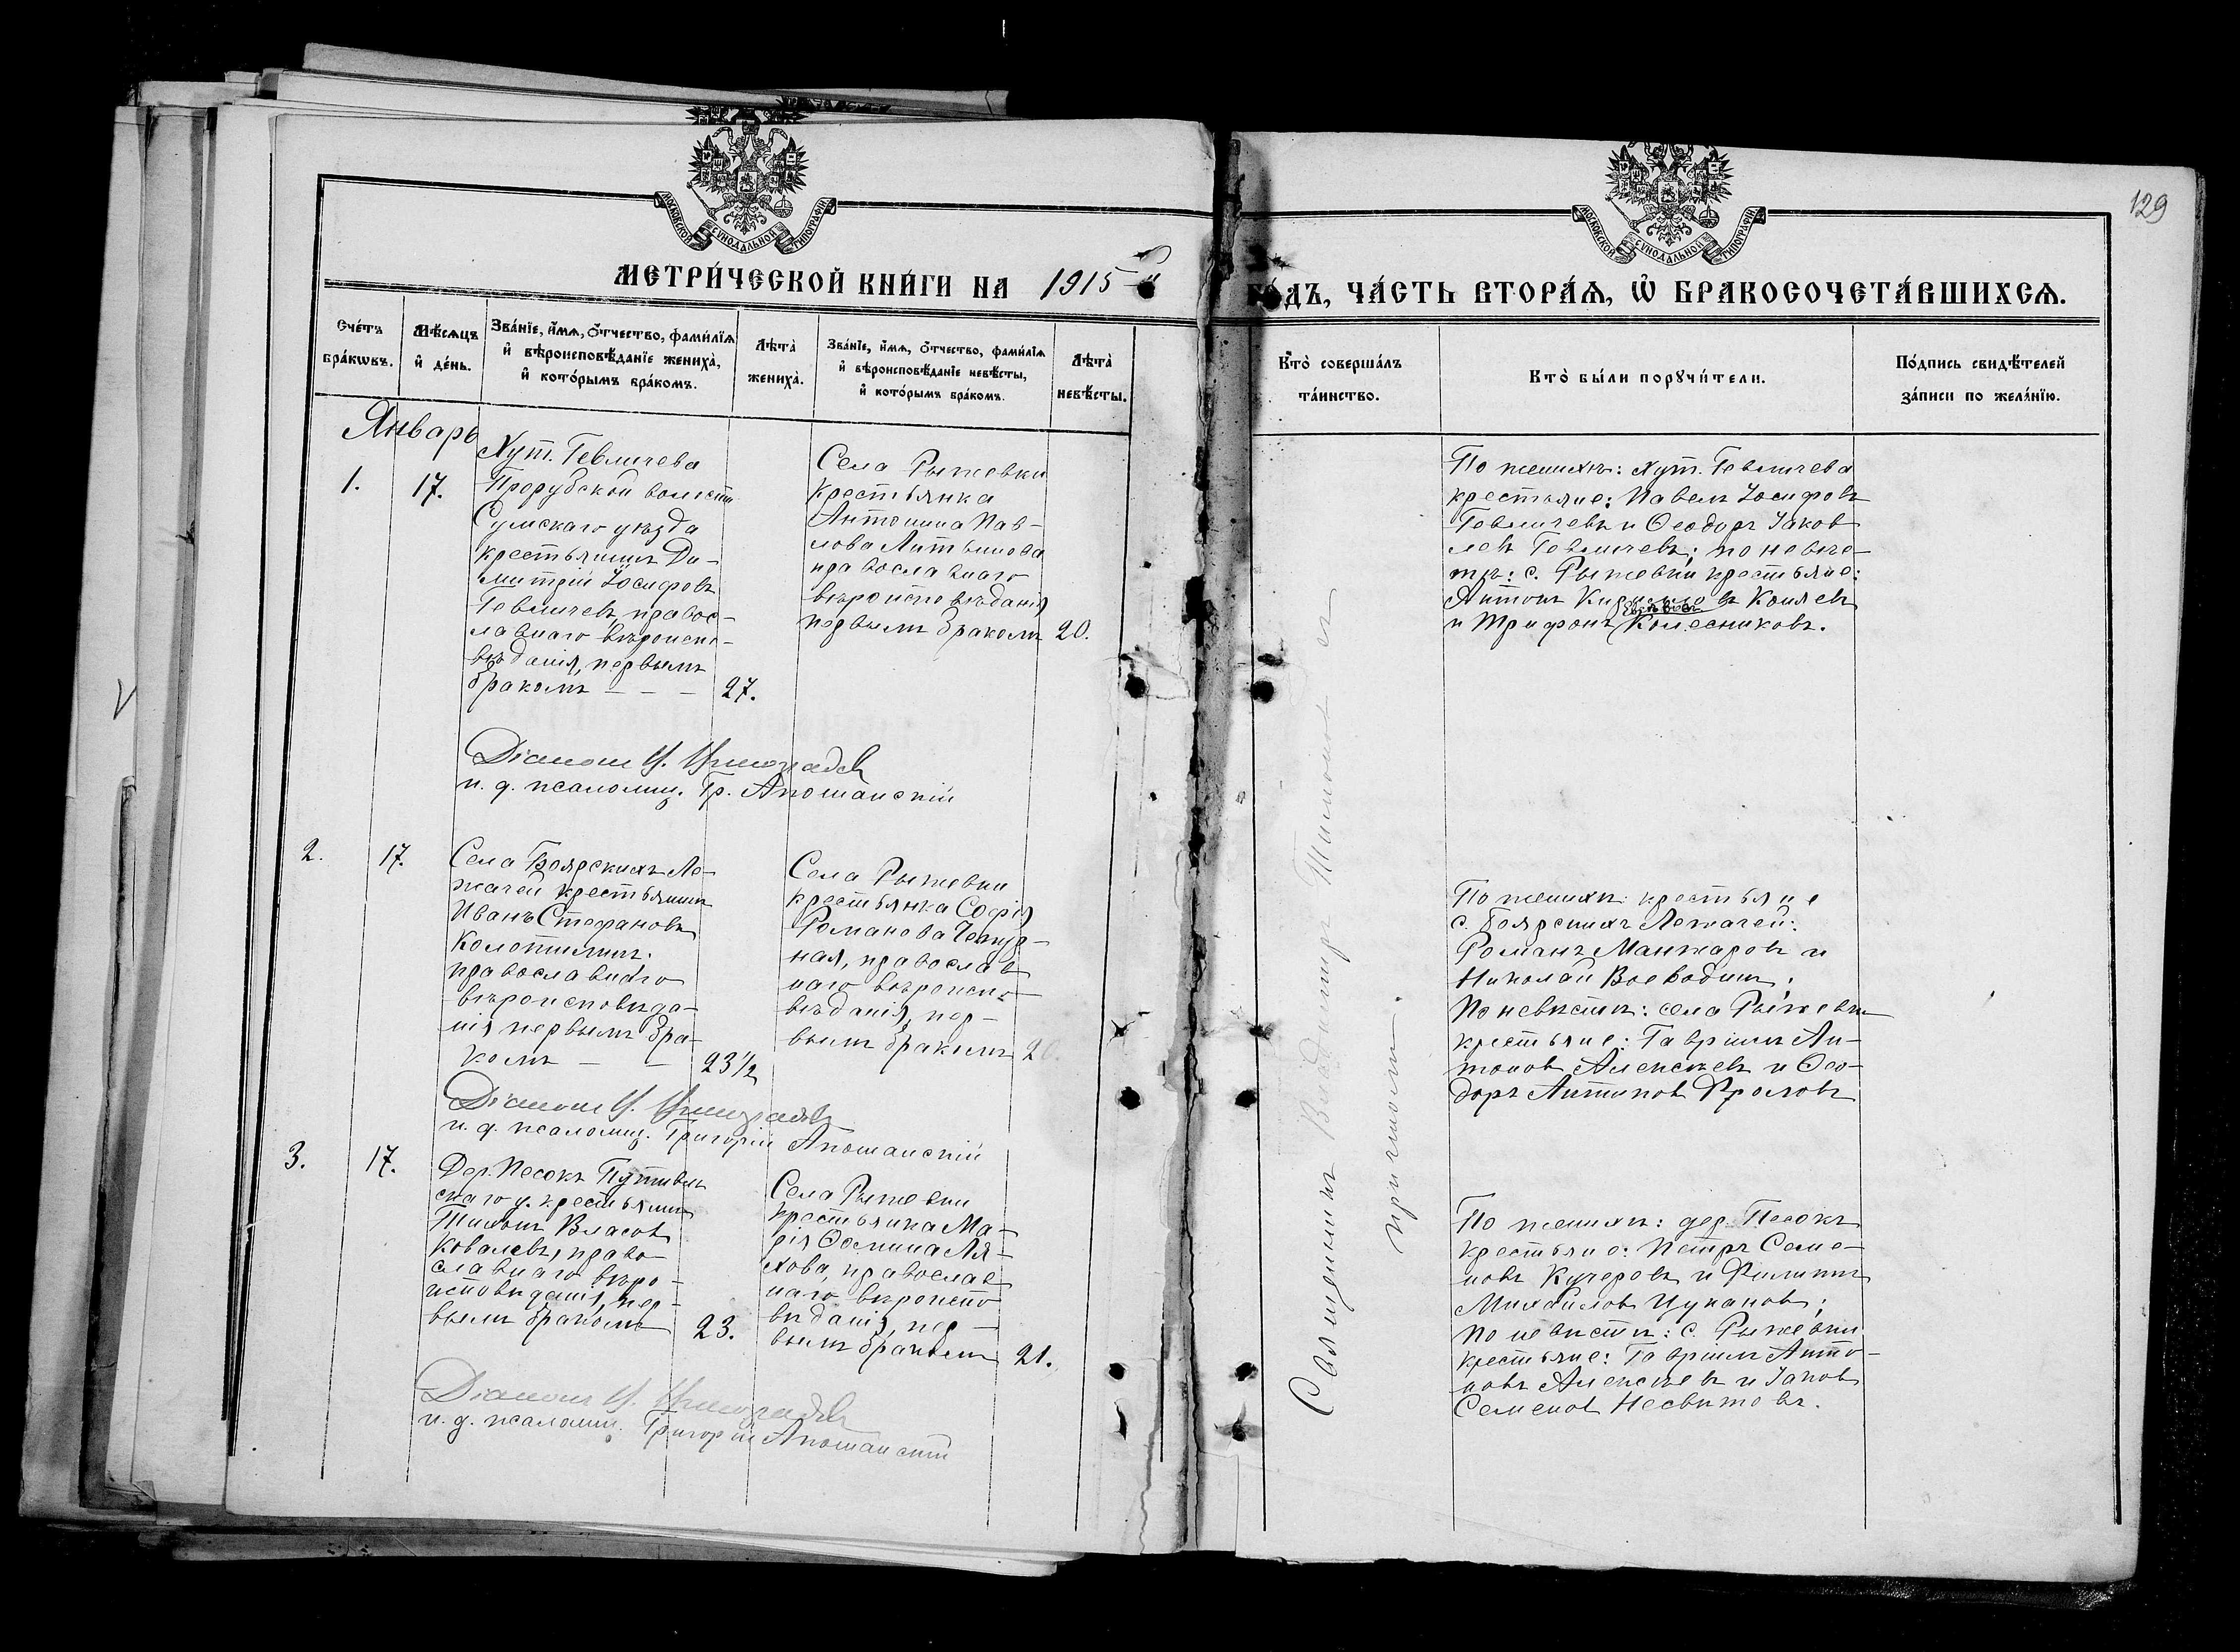 129
МОСКОВСКОЙ СУНОДАЛЬНОЙ ТИПОГРАФІИ
МОСКОВСКОЙ СУНОДАЛЬНОЙ ТИПОГРАФІИ
МЕТРИ́ЧЕСКОЙ КНИ́ГИ НА 1915-й
ГО́ДЪ, ЧА́СТЬ ВТОРА́Я, Ѽ БРАКОСОЧЕТА́ВШИХСЯ.
Сче́тъ бра́кѡвъ.
Мѣ́сяцъ и҆ де́нь.
Зва́нїе, и҆́мя, ѻ҆́тчество, фами́лїя
и҆ вѣроисповѣ́данїе жениха̀,
и҆ кото́рымъ бра́комъ.
Лѣта̀ жениха̀.
Зва́нїе, и҆́мя, ѻ҆́тчество, фами́лїя
и҆ вѣроисповѣ́данїе невѣ́сты,
и҆ кото́рымъ бра́комъ.
Лѣта̀ невѣ́сты.
Кто̀ соверша́лъ та́инство.
Кто̀ бы́ли порꙋчи́тели.
По́дпись свидѣ́телей
за́писи по жела́нїю.
Январь
1.
17.
Хут. Гевличева
Прорубской волости
Сумскаго уѣзда
крестьянинъ Ди-
митрій Іосифовъ
Гевличевъ, правос-
лавнаго вѣроиспо-
вѣданія, первымъ
бракомъ — — —
27.
Села Рыжевки
крестьянка
Антонина Пав-
лова Литвинова
православнаго
вѣроисповѣданія
первымъ бракомъ
20.
По женихѣ: хут. Гевличева
крестьяне: Павелъ Іосифовъ
Гевличевъ и Ѳеодоръ Іаков
левъ Гевличевъ; по невѣс-
тѣ: с. Рыжевки крестьяне:
Антонъ Кирилловъ Коняевъ
и Трифонъ Колесниковъ.
и. д. псаломщ. Гр. Апошанскій
2.
17.
Села Боярскихъ Ле-
жачей крестьянинъ
Иванъ Стефановъ
Колопилинъ.
православнаго
вѣроисповѣда-
нія первымъ бра-
комъ — —
23½
Села Рыжевки
крестьянка Софія
Романова Чепур-
ная, православ
наго вѣроиспо-
вѣданія, пер-
вымъ бракомъ
По женихѣ: крестьяне
с. Боярскихъ Лежачей:
Романъ Манжаровъ и
Николай Воеводинъ;
По невѣстѣ: села Рыжевки
крестьяне: Гавріилъ Ан-
тоновъ Алексѣевъ и Ѳео-
доръ Антиповъ Фроловъ
и. д. псаломщ. Григорій Апошанскій
3.
17.
Дер. Песокъ Путивль
скаго у. крестьянинъ
Тихонъ Власовъ
Ковалевъ, право-
славнаго вѣро-
исповѣданія, пер-
вымъ бракомъ
23.
Села Рыжевки
крестьянка Ма-
рія Ѳомина Ля-
хова, православ
наго вѣроиспо
вѣданія, пер-
вымъ бракомъ
21.
По женихѣ: дер. Песокъ
крестьяне: Петръ Семе-
новъ Кучеровъ и Филиппъ
Михайловъ Цукановъ;
по невѣстѣ: с. Рыжевки
крестьяне: Гавріилъ Анто-
новъ Алексѣевъ и Іаковъ
Семеновъ Несвитовъ.
и. д. псаломщ. Григорій Апошанскій
Священникъ Владиміръ
причтомъ.